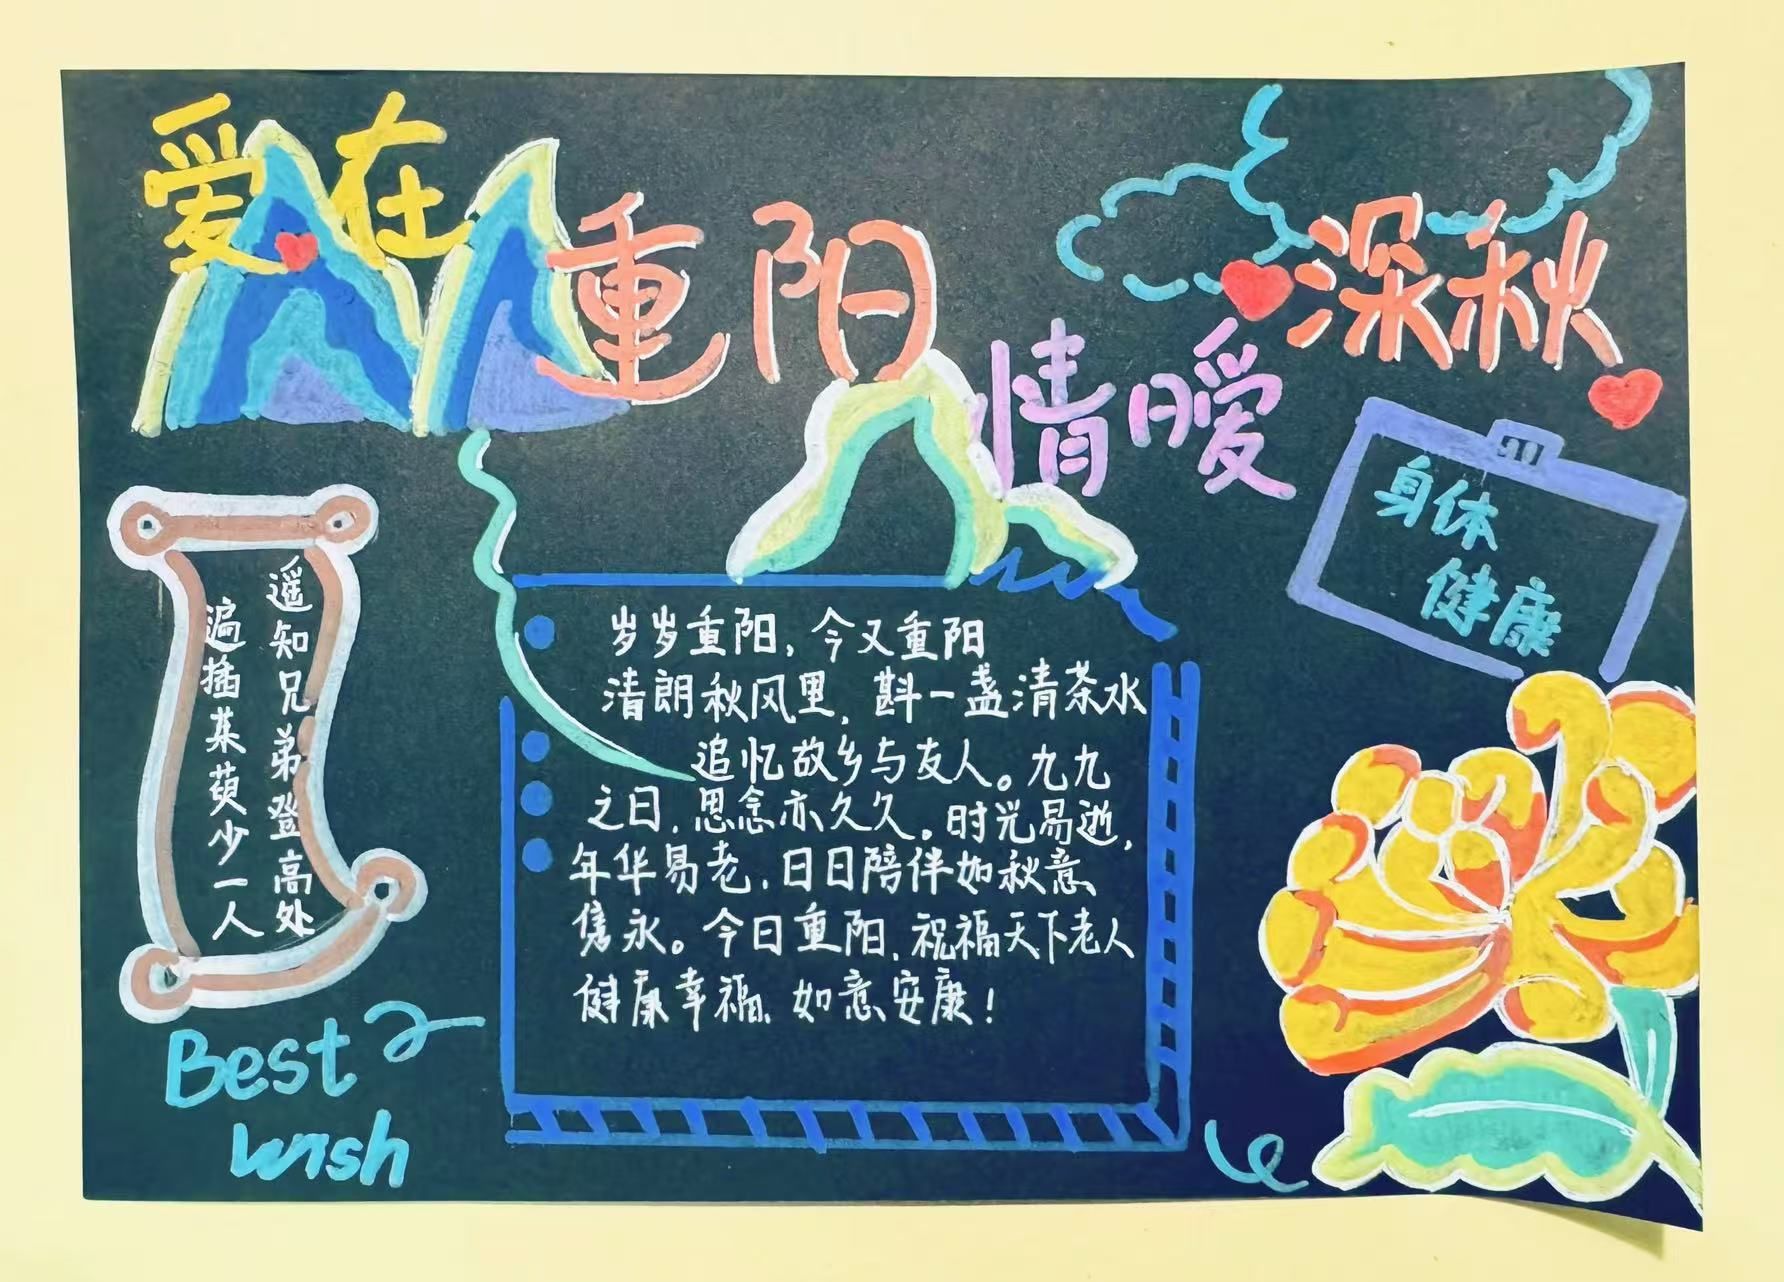 爱在
重阳
情暖
深秋
身体
健康
遥知兄弟登高处
遍插茱萸少一人
岁岁重阳，今又重阳
清朗秋风里，斟一盏清茶水
追忆故乡与友人。九九
之日，思念亦久久。时光易逝，
年华易老，日日陪伴如秋意
隽永。今日重阳，祝福天下老人
健康幸福、如意安康！
Best
wish